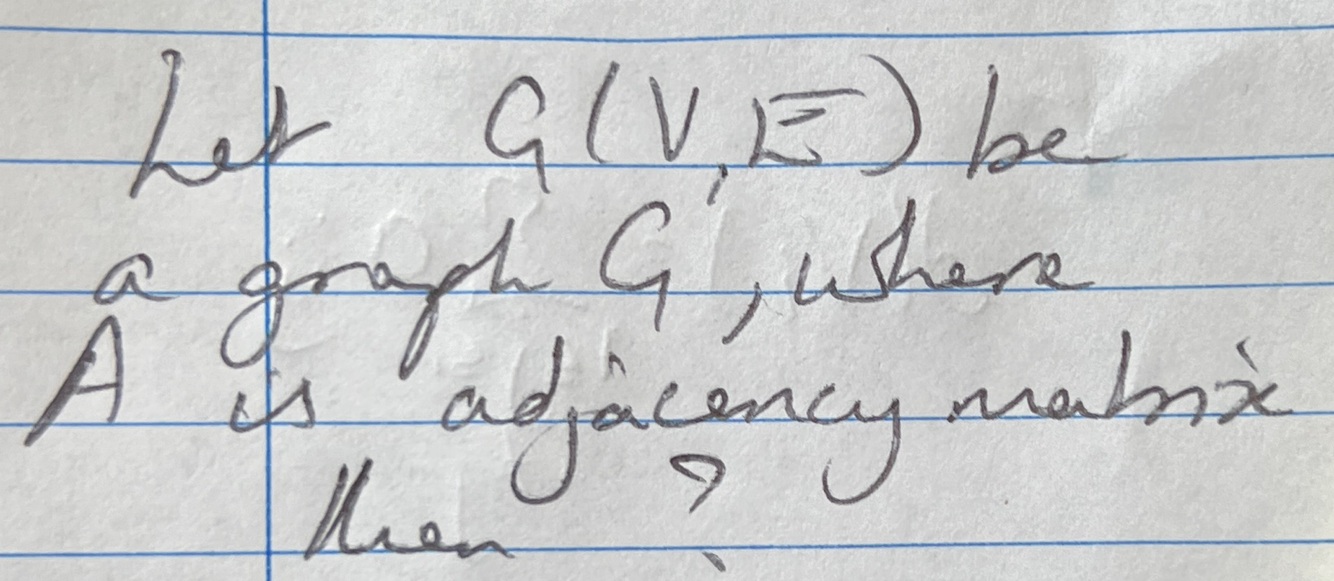 Let G(V,E) be
a graph G, where
A is adjacency matrix
then ?